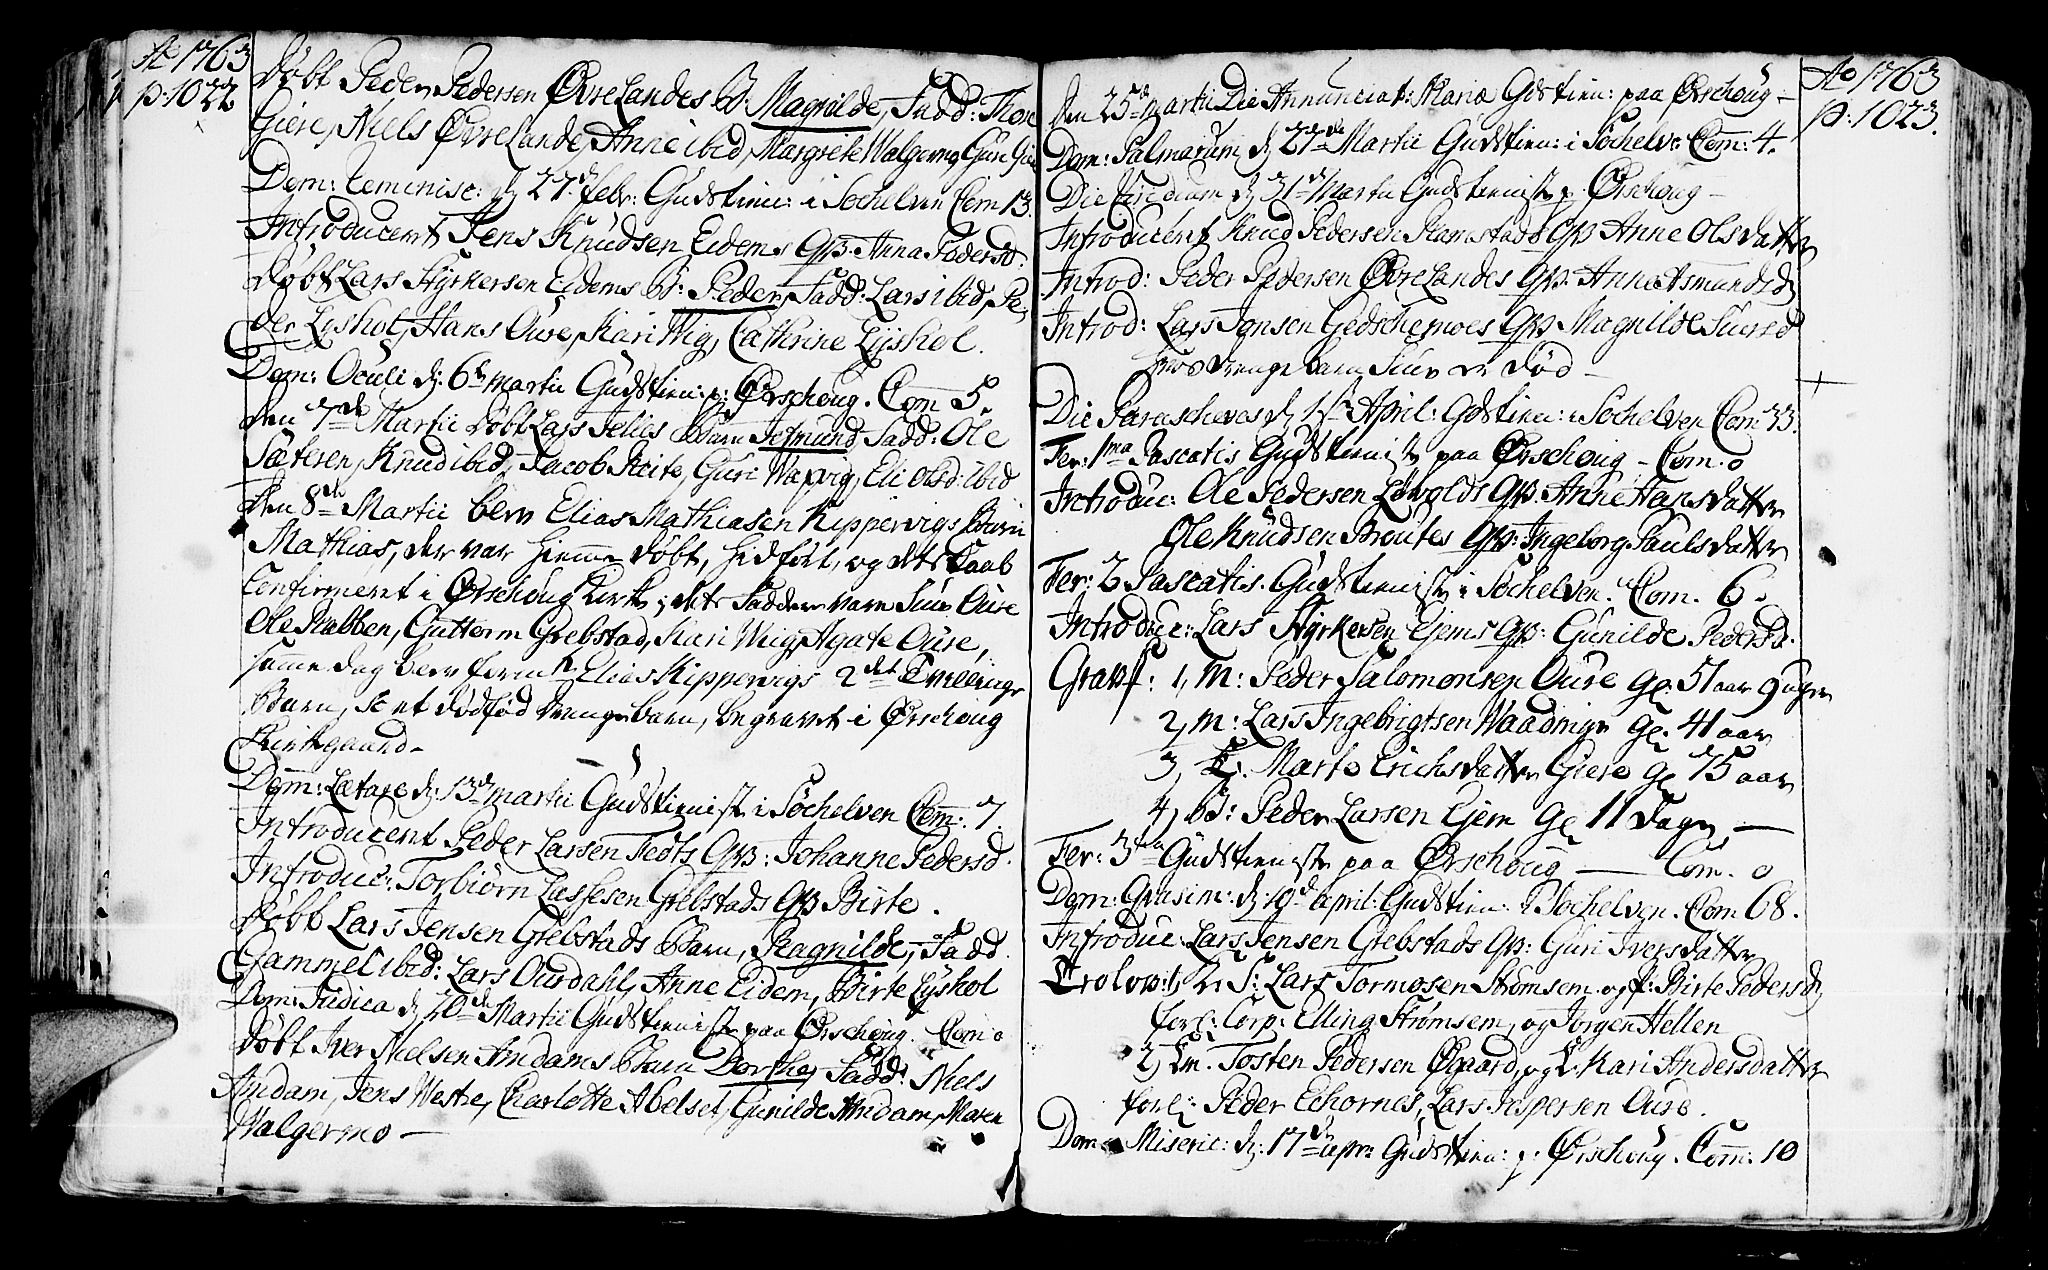 Ao 1763
p: 1022
Døbt Peder Pedersen ØvreLandes B: Magnilde, Fadd: Thore
Giere, Niels ØvreLande, Anne ibid, Margrete Walgermo, Guri Giere
Dom: Reminisc: d 27. febr: Gudstien: i Søchelven Com 13.
Introduceret Jens Knudsen Eidems QvB. Anna Pedersd:
Døbt Lars Styrkersen Eidems B: Peder, Fadd: Lars ibid, Pe-
der Lyshol, Hans Oure, Kari Wig, Cathrine Lyshol.
Dom: Oculi d: 6te martii Gudstien: p: Ørschoug. Com 5.
den 7de Martii døbt Lars Barn Fadd: Ole
Sætersen, Knud ibid, Jacob Guri Eli Olsd: ibid
den 8de Martii blev Elias Mathiasen Kippervigs Barn
Mathias, der var hiemme døbt, hidført, og dets Daab
Confirmeret i Ørschoug Kirke; dets Faddere vare Siur Oure
Ole Rabben, Guttorm Grebstad, Kari Wig, Agate Oure,
samme dag blev Elias Kippervigs 2det Tvillinge
Barn, et dødfød Drengebarn, begravet i Ørschoug
Kirkegaard-
Dom: Lætare d: 13de martii Gudstieniste i Søchelven Com: 7.
Introduceret Peder Larsen Tedts QvB: Johanne Pedersd.
Introduc: Torbiørn Lassesen Grebstads QvB Birte.
Døbt Lars Jensen Grebstads Barn, Ragnilde, Fadd.
Gammel ibid: Lars Ourdahl, Anne Eidem, Birte Lyshol
Dom: Judica d 20de Martii Gudstieniste paa Ørschoug. Com o
Døbt Iver Nielsen Amdams Barn Dorthe, Fadd: Niels
Amdam, Jens Westre, Charlotte Abelset, Gunilde Amdam, Maren
Walgermo -
Ao 1763
p: 1023.
den 25de martii Die Annunciat: Mariæ Gdstien: paa Ørschoug -
Dom: Palmarum, d 27de Martii Gudstien: i Søchelv: Com: 4.
Die Viridium d 31de Martii Gudstieniste p. Ørschoug -
Introduceret Knud Pedersen Ramstads QvB Anne Olsdatter
Introd: Peder Pedersen ØvreLandes QvB. Anne Asmundsd
Introd: Lars Jonsen Gedschemoes QvB Magnilde Siursd
hvis drengebarn Siur er død -
Die Parascheves d 1ste April: Gdstien: i Søchelven Com 33.
Fer: 1ma Pascatis Gudstieniste paa Ørschoug - Com. o
Introduc: Ole Pedersen Løvolds QvB. Anne Hansdatter
Ole Knudsen Broutes QvB: Ingeborg Paulsdatter
Fer: 2 Pascatis. Gudstieniste i Søchelven. Com. 6.
Introduc: Lars Styrkersen Ejems QvB: Gunilde Pedersd.
Gravf: 1, M: Peder Salomonsen Oure gl: 51 aar 9 uger
2, M: Lars Ingebrigtsen Waadmyr gl. 41 aar
3, Marte Erichsdatter Giere gl 75 aar
4, B: Peder Larsen Ejem gl 11 dage -
Fer: 3tia Gudstieniste paa Ørschoug - Com. o
Dom: Qvasim: d 10de april: Gudstien: i Søchelven. Com 68.
Introduc: Lars Jensen Grebstads QvB: Guri Iversdatter
Trolov: 1, S: Lars Tormosen Strømsem. og f: Birte Pedersd
forl: Corp: Elling Strømsem, og Jørgen Hellen
2, Tosten Pedersen Øgaard, og Kari Andersdatter
forl: Peder Echornes, Lars Jespersen Oure.
Dom: Miseric: d: 17de apr: Gudstien: p: Ørschoug. Com: 10